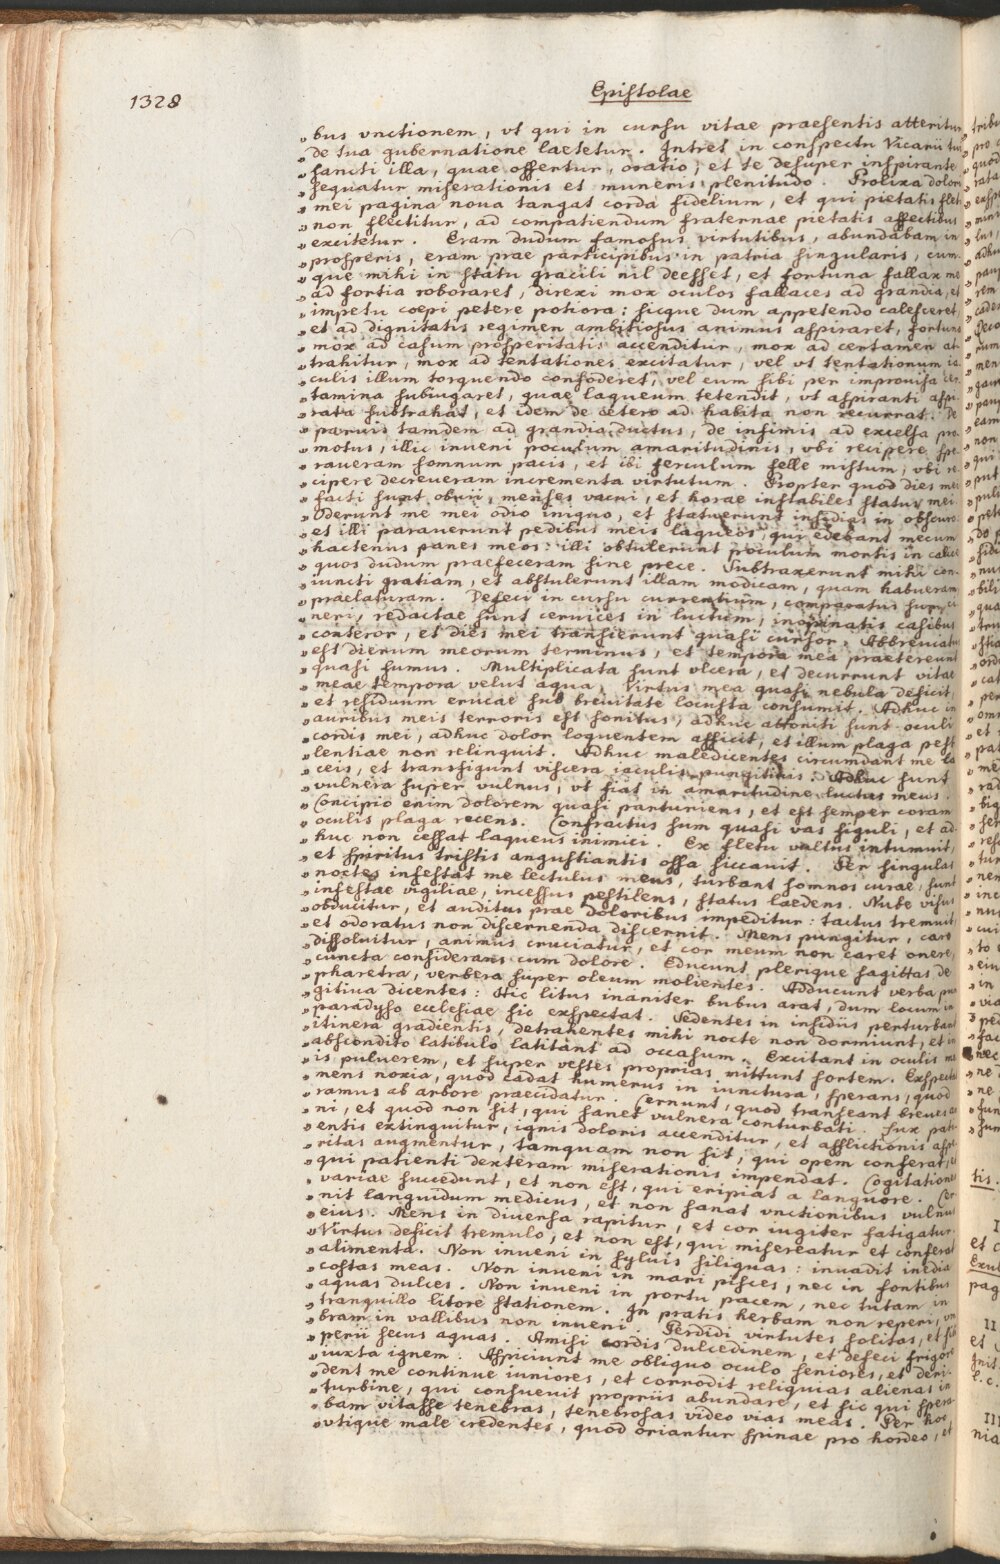 1328
Epistolae
„ bus vnctionem, vt qui in cursu vitae praesentis atteritur
„ de tua gubernatione laetetur. Intret in conspectu Vicarii tui
„ sancti illa, quae offertur, oratio; et te desuper inspirante
„ sequatur miserationis et muneris plenitudo. Prolixa doloris
„ mei pagina noua tangat corda fidelium, et qui pietatis fletu
„ non flectitur, ad compatiendum fraternae pietatis affectibus
„ excitetur. Eram dudum famosus virtutibus, abundabam in
„ prosperis, eram prae participibus in patria singularis, cum-
„ que mihi in statu gracili nil deesset, et fortuna fallax me
„ ad fortia roboraret, direxi mox oculos fallaces ad grandia, et
„ impetu coepi petere potiora: sicque dum appetendo calesceret,
„ et ad dignitatis regimen ambitiosus animus aspiraret, fortuna
„ mox ad casum prosperitatis accenditur, mox ad certamen at-
„ trahitur, mox ad tentationes excitatur, vel vt tentationum ia-
„ culis illum torquendo confoderet, vel eum sibi per improuisa cer-
„ tamina subiugaret, quae laqueum tetendit, vt aspiranti aspi-
„ rata subtrahat, et idem de cetero ad habita non recurrat. De
„ paruis tamdem ad grandia ductus, de infimis ad excelsa pro-
„ motus, illic inueni poculum amaritudinis, vbi recipere spe-
„ raueram somnum pacis, et ibi ferculum felle mistum, vbi re-
„ cipere decreueram incrementa virtutum. Propter quod dies mei
„ facti sunt obuii, menses vacui, et horae instabiles status mei.
„ Oderunt me mei odio iniquo, et statuerunt insidias in obscuro:
„ et illi parauerunt pedibus meis laqueos, qui edebant mecum
„ hactenus panes meos: illi obtulerunt poculum mortis in calice
„ quos dudum praefeceram sine prece. Subtraxerunt mihi con-
„ iuncti gratiam, et abstulerunt illam modicam, quam habueram
„ praelaturam. Defeci in cursu currentium, comparatus sum ci-
„ neri, redactae sunt cervices in luctum, inopinatis casibus
„ conteror, et dies mei transierunt quasi cursor. Abbreuiatus
„ est dierum meorum terminus, et tempora mea praetereunt
„ quasi fumus. Multiplicata sunt vlcera, et decurrunt vitae
„ meae tempora velut aqua. Virtus mea quasi nebula deficit,
„ et residuum erucae sub breuitate locusta consumit. Adhuc in
„ auribus meis terroris est sonitus, adhuc attoniti sunt oculi
„ cordis mei, adhuc dolor loquentem afficit, et illum plaga pesti-
„ lentiae non relinquit. Adhuc maledicentes circumdant me la-
„ ceis, et transfigunt viscera iaculis pungitiuis. Adhuc sunt
„ vulnera super vulnus, vt fiat in amaritudine luctus meus.
„ Concipio enim dolorem quasi parturiens, et est semper coram
„ oculis plaga recens. Confractus sum quasi vas figuli, et ad-
„ huc non cessat laqueus inimici. Ex fletu vultus intumuit,
„ et spiritus tristis angustiantis ossa siccauit. Per singulas
„ noctes infestat me lectulus meus, turbant somnos curae, sunt
„ infestae vigiliae, incessus pestilens, status laedens. Nube visus
„ obducitur, et auditus prae doloribus impeditur: tactus tremuit,
„ et odoratus non discernenda discernit. Mens pungitur, caro
„ dissoluitur, animus cruciatur, et cor meum non caret onere,
„ cuncta considerans cum dolore. Educunt plerique sagittas de
„ pharetra, verbera super oleum molientes. Adducunt verba pun-
„ gitiua dicentes: Hic litus inaniter bubus arat, dum locum in
„ paradyso ecclesiae sic exspectat. Sedentes in insidiis perturbant
„ itinera gradientis, detrahentes mihi nocte non dormiunt, et in
„ abscondito latibulo latitant ad occasum. Excitant in oculis me-
„ is puluerem, et super vestes proprias mittunt sortem. Exspectat
„ mens noxia, quod cadat humerus in iunctura, sperans, quod
„ ramus ab arbore praecidatur. Cernunt, quod transeant breues an-
„ ni, et quod non sit, qui sanet vulnera conturbati. Lux pati-
„ entis extinguitur, ignis doloris accenditur, et afflictionis aspe-
„ ritas augmentur, tamquam non sit, qui opem conferat, et
„ qui patienti dexteram miserationis impendat. Cogitationes
„ variae succedunt, et non est, qui eripiat a languore. Cer-
„ nit languidum medicus, et non sanat vnctionibus vulnus
„ eius. Mens in diuersa rapitur, et cor iugiter fatigatur.
„ Virtus deficit tremulo, et non est, qui misereatur et conferat
„ alimenta. Non inueni in syluis siliquas: inuadit inedia
„ costas meas. Non inueni in mari pisces, nec in fontibus
„ aquas dulces. Non inueni in portu pacem, nec tutam in
„ tranquillo litore stationem. In pratis herbam non reperi, vm-
„ bram in vallibus non inueni. Perdidi virtutes solitas, et siti
„ perii secus aquas. Amisi cordis dulcedinem, et defeci frigore
„ iuxta ignem. Aspiciunt me obliquo oculo seniores, et deri-
„ dent me continue iuniores, et corrodit reliquias alienas in
„ turbine, qui consueuit propriis abundare, et sic qui spera-
„ bam vitasse tenebras, tenebrosas video vias meas. Per hoc
„ vtique male credentes, quod oriantur spinae pro hordeo, et